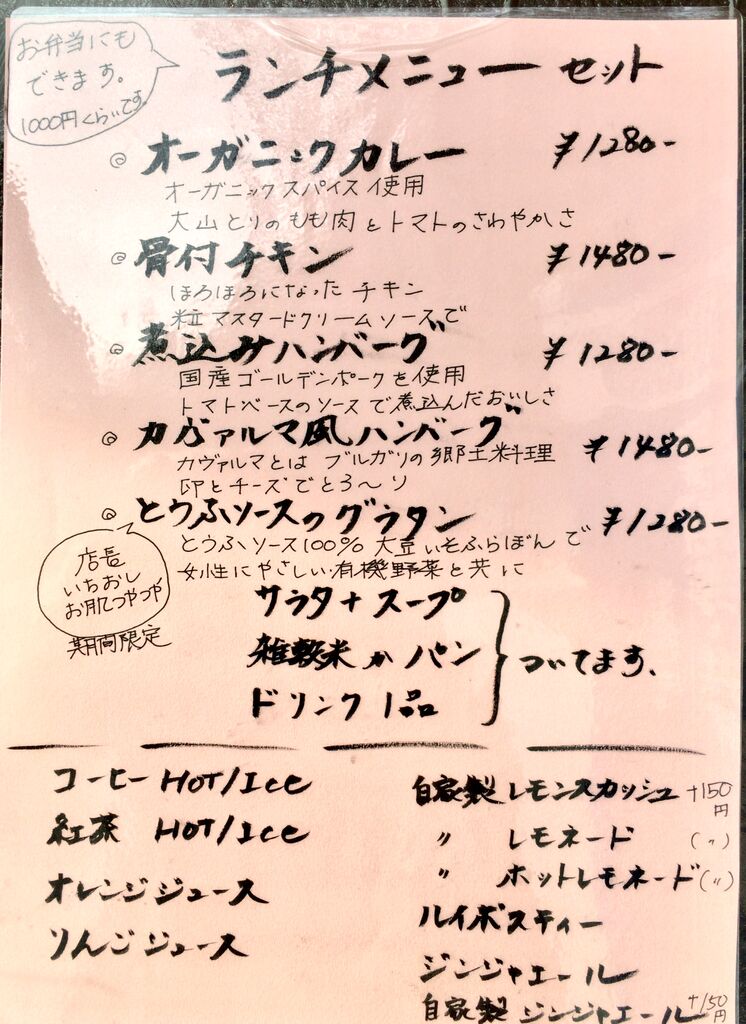 お弁当にも
できます。
1000円くらいです
ランチメニュー セット
◎ オーガニックカレー ¥1280-
オーガニックスパイス使用
大山とりのもも肉とトマトのさわやかさ
◎ 骨付チキン ¥1480-
ほろほろになったチキン
粒マスタードクリームソースで
◎ 煮込みハンバーグ ¥1280-
国産ゴールデンポークを使用
トマトベースのソースで煮込んだおいしさ
◎ カヴァルマ風ハンバーグ ¥1480-
カヴァルマとは ブルガリの郷土料理
卵とチーズでとろ〜リ
◎ とうふソースのグラタン ¥1280-
とうふソース100% 大豆いそふらぼんで
女性にやさしい有機野菜と共に
店長
いちおし
お肌つやつや
期間限定
サラタ+スープ
雑穀米かパン
ドリンク1品
ついてます、
コーヒー HOT/Ice
紅茶 HOT/Ice
オレンジジュース
りんごジュース
自家製レモンスカッシュ +150円
〃 レモネード (〃)
〃 ホットレモネード(〃)
ルイボスティー
ジンジャエール
自家製 ジンジャエール +150円